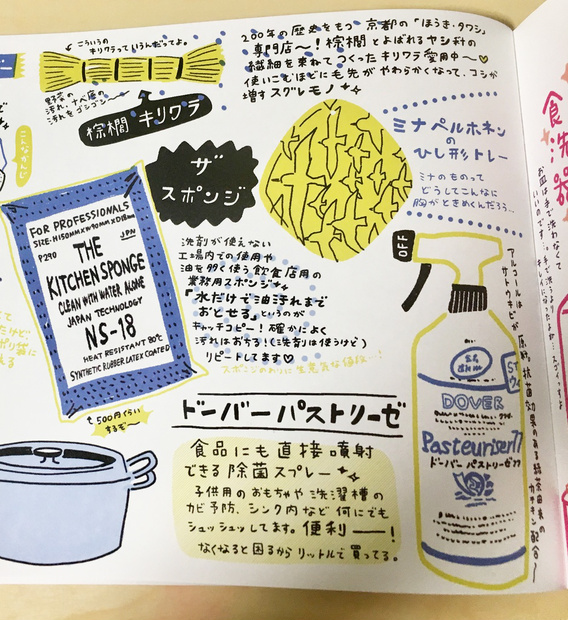 こういうの
キリワラっていうんだってよ。
野菜の
汚れ、ナベ底の
汚れをゴシゴシ〜
棕櫚 キリワラ
200年の歴史をもつ 京都の「ほうき・タワシ」
専門店〜!棕櫚とよばれるヤシ科の
繊維を束ねてつくったキリワラ愛用中〜♡
使いこむほどに毛先がやわらかくなって、コシが
増すスグレモノ
ザ
スポンジ
ミナペルホネン
の
ひし形トレー
ミナのものって
どうしてこんなに
胸がときめくんだろう…
FOR PROFESSIONALS
SIZE:H150MM×W90MM×D18MM
P290
JPN
THE
KITCHEN SPONGE
CLEAN WITH WATER ALONE
JAPAN TECHNOLOGY
NS-18
HEAT RESISTANT 80℃
SYNTHETIC RUBBER LATEX COATED
洗剤が使えない
工場内での使用や
油を多く使う飲食店用の
業務用スポンジ
「水だけで油汚れまで
おとせる」というのが
キャッチコピー!確かによく
汚れはおちる!(洗剤は使うけど)
リピートしてます♡
スポンジのわりに生意気な値段…!
500円くらい
するぞ〜
ドーバーパストリーゼ
食品にも直接噴射
できる除菌スプレー
子供用のおもちゃや洗濯槽の
カビ予防、シンク内など何にでも
シュッシュッしてます。便利ー!
なくなると困るからリットルで買ってる。
OFF
DOVER
Pasteuriser77
ドーバー パストリーゼ77
アルコールは
サトウキビが原料。抗菌効果のある緑茶由来の
カテキン配合〜
食洗器
お皿は手で洗わなくて
いいのです